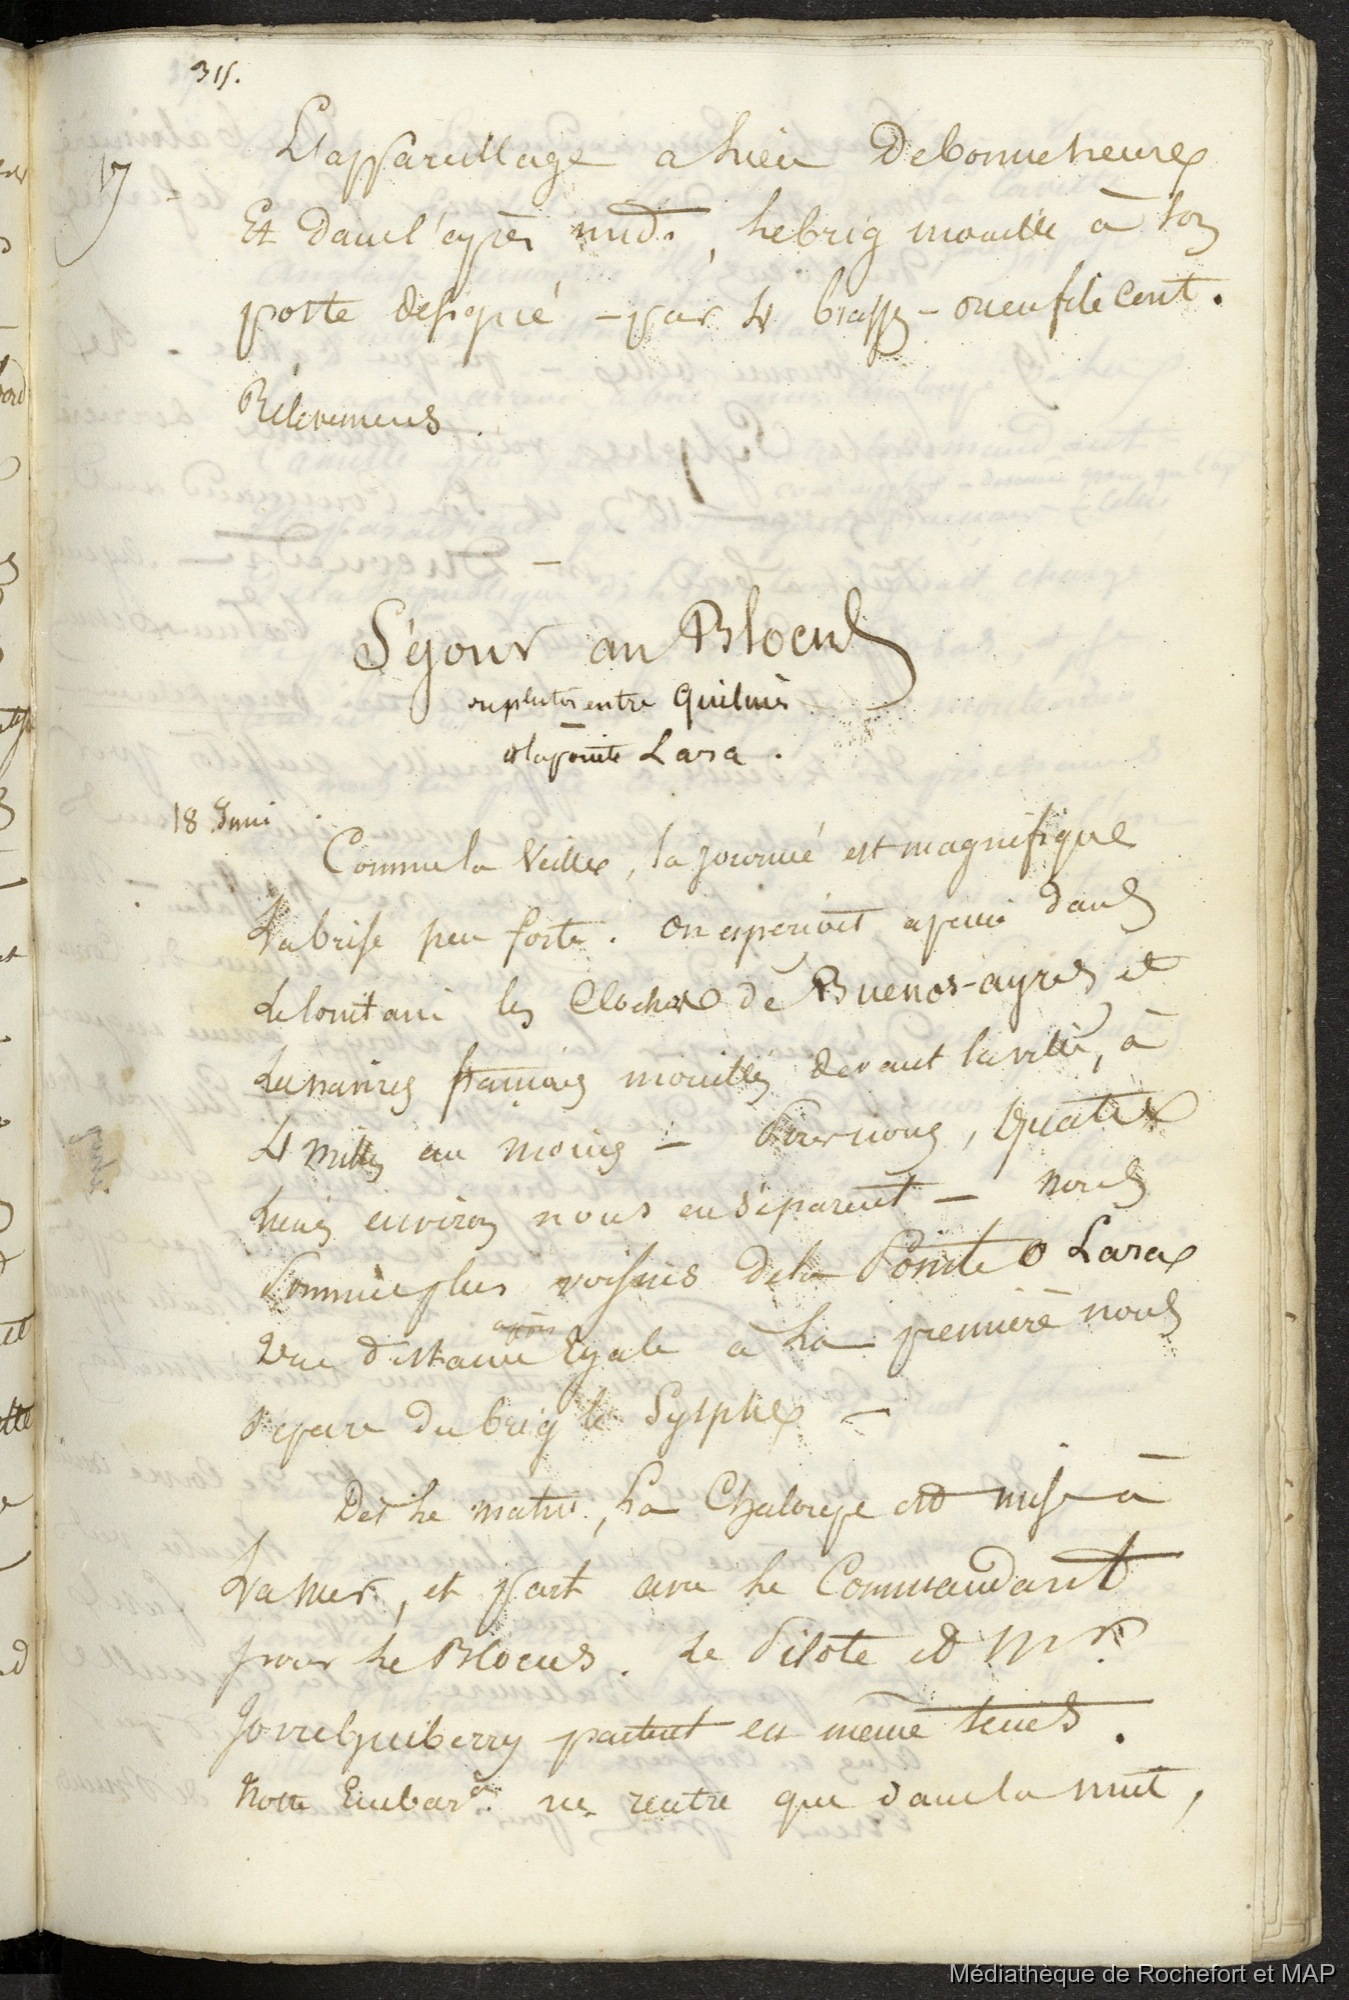 315.
17
L'appareillage a lieu de bonne heure
Et dans l'après midi, le brig mouille à son
poste désigné - par 4 brasses - on en file cent.
Relevemens.
Séjour au Blocus
ou plutot entre Quilmès
et la pointe Lara.
18 Juin
Comme la Veille, la journée est magnifique
La brise peu forte. On aperçoit a peine dans
Le lointain les Clochers de Buenos-ayres et
Les navires français mouillés devant la ville, à
4 milles au moins - Pour nous, Quatre
lieues environ nous en séparent - Nous
Sommes plus voisins de la Pointe Lara
Une distance Egale à la première nous
sépare du brig le Sylphe -
Dès le matin, la Chaloupe est mise à
La Mer, et part avec le Commandant
pour le Blocus. Le Pilote et Mr.
Jorreguiberry partent en même tems.
Notre Embaron. ne rentre que dans la nuit,
Médiathèque de Rochefort et MAP